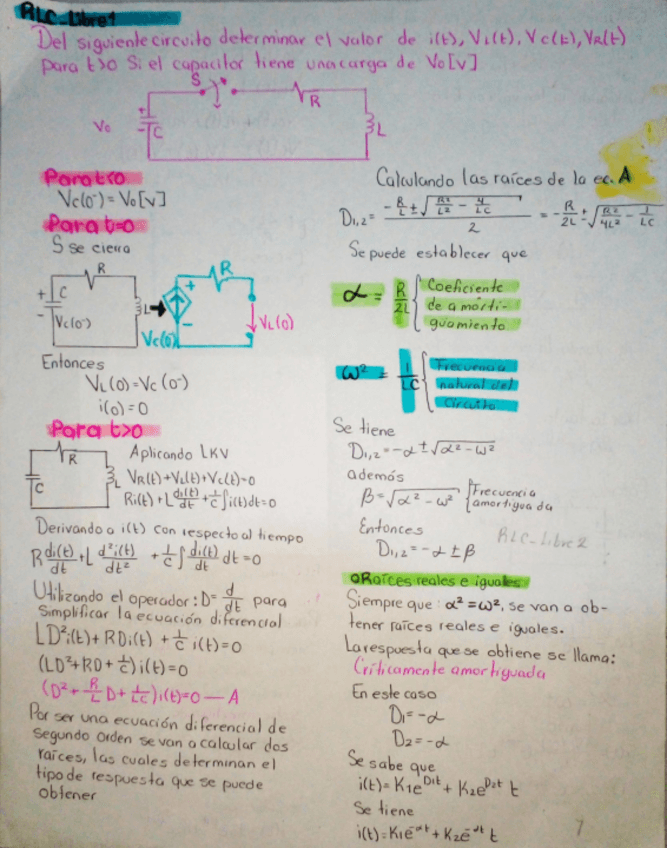 RLC_Libre1
Del siguiente circuito determinar el valor de i(t), VL(t), Vc(t), VR(t)
para t>0 Si el capacitor tiene una carga de Vo[v]
S
R
+
Vo
-
C
L
Para t<0
Vc(0⁻)=Vo[v]
Para t=0
S se cierra
R
+
C
-
Vc(0⁻)
L
+
R
-
Vc(0⁻)
VL(0)
Entonces
VL(0)=Vc(0⁻)
i(0)=0
Para t>0
R
L
C
Aplicando LKV
VR(t)+VL(t)+Vc(t)=0
Ri(t)+L di(t)/dt + 1/C ∫i(t)dt=0
Derivando a i(t) con respecto al tiempo
R di(t)/dt + L d²i(t)/dt² + 1/C ∫ di(t)/dt dt=0
Utilizando el operador: D= d/dt para
simplificar la ecuación diferencial
LD²i(t)+RDi(t)+ 1/C i(t)=0
(LD²+RD+ 1/C)i(t)=0
(D²+ R/L D+ 1/LC)i(t)=0 — A
Por ser una ecuación diferencial de
segundo orden se van a calcular dos
raíces, las cuales determinan el
tipo de respuesta que se puede
obtener
Calculando las raíces de la ec. A
D1,2= (-R/L ± √(R²/L² - 4/LC))/2 = -R/2L ± √(R²/4L² - 1/LC)
Se puede establecer que
α = R/2L { Coeficiente
de amorti-
guamiento
ω² = 1/LC { Frecuencia
natural del
circuito
Se tiene
D1,2=-α±√α²-ω²
además
β=√α²-ω² { Frecuencia
amortiguada
Entonces
RLC_Libre2
D1,2=-α±β
Raíces reales e iguales
Siempre que: α²=ω², se van a ob-
tener raíces reales e iguales.
La respuesta que se obtiene se llama:
Críticamente amortiguada
En este caso
D1=-α
D2=-α
Se sabe que
i(t)=K1e^D1t + K2e^D2t t
Se tiene
i(t)=K1e^-αt + K2e^-αt t